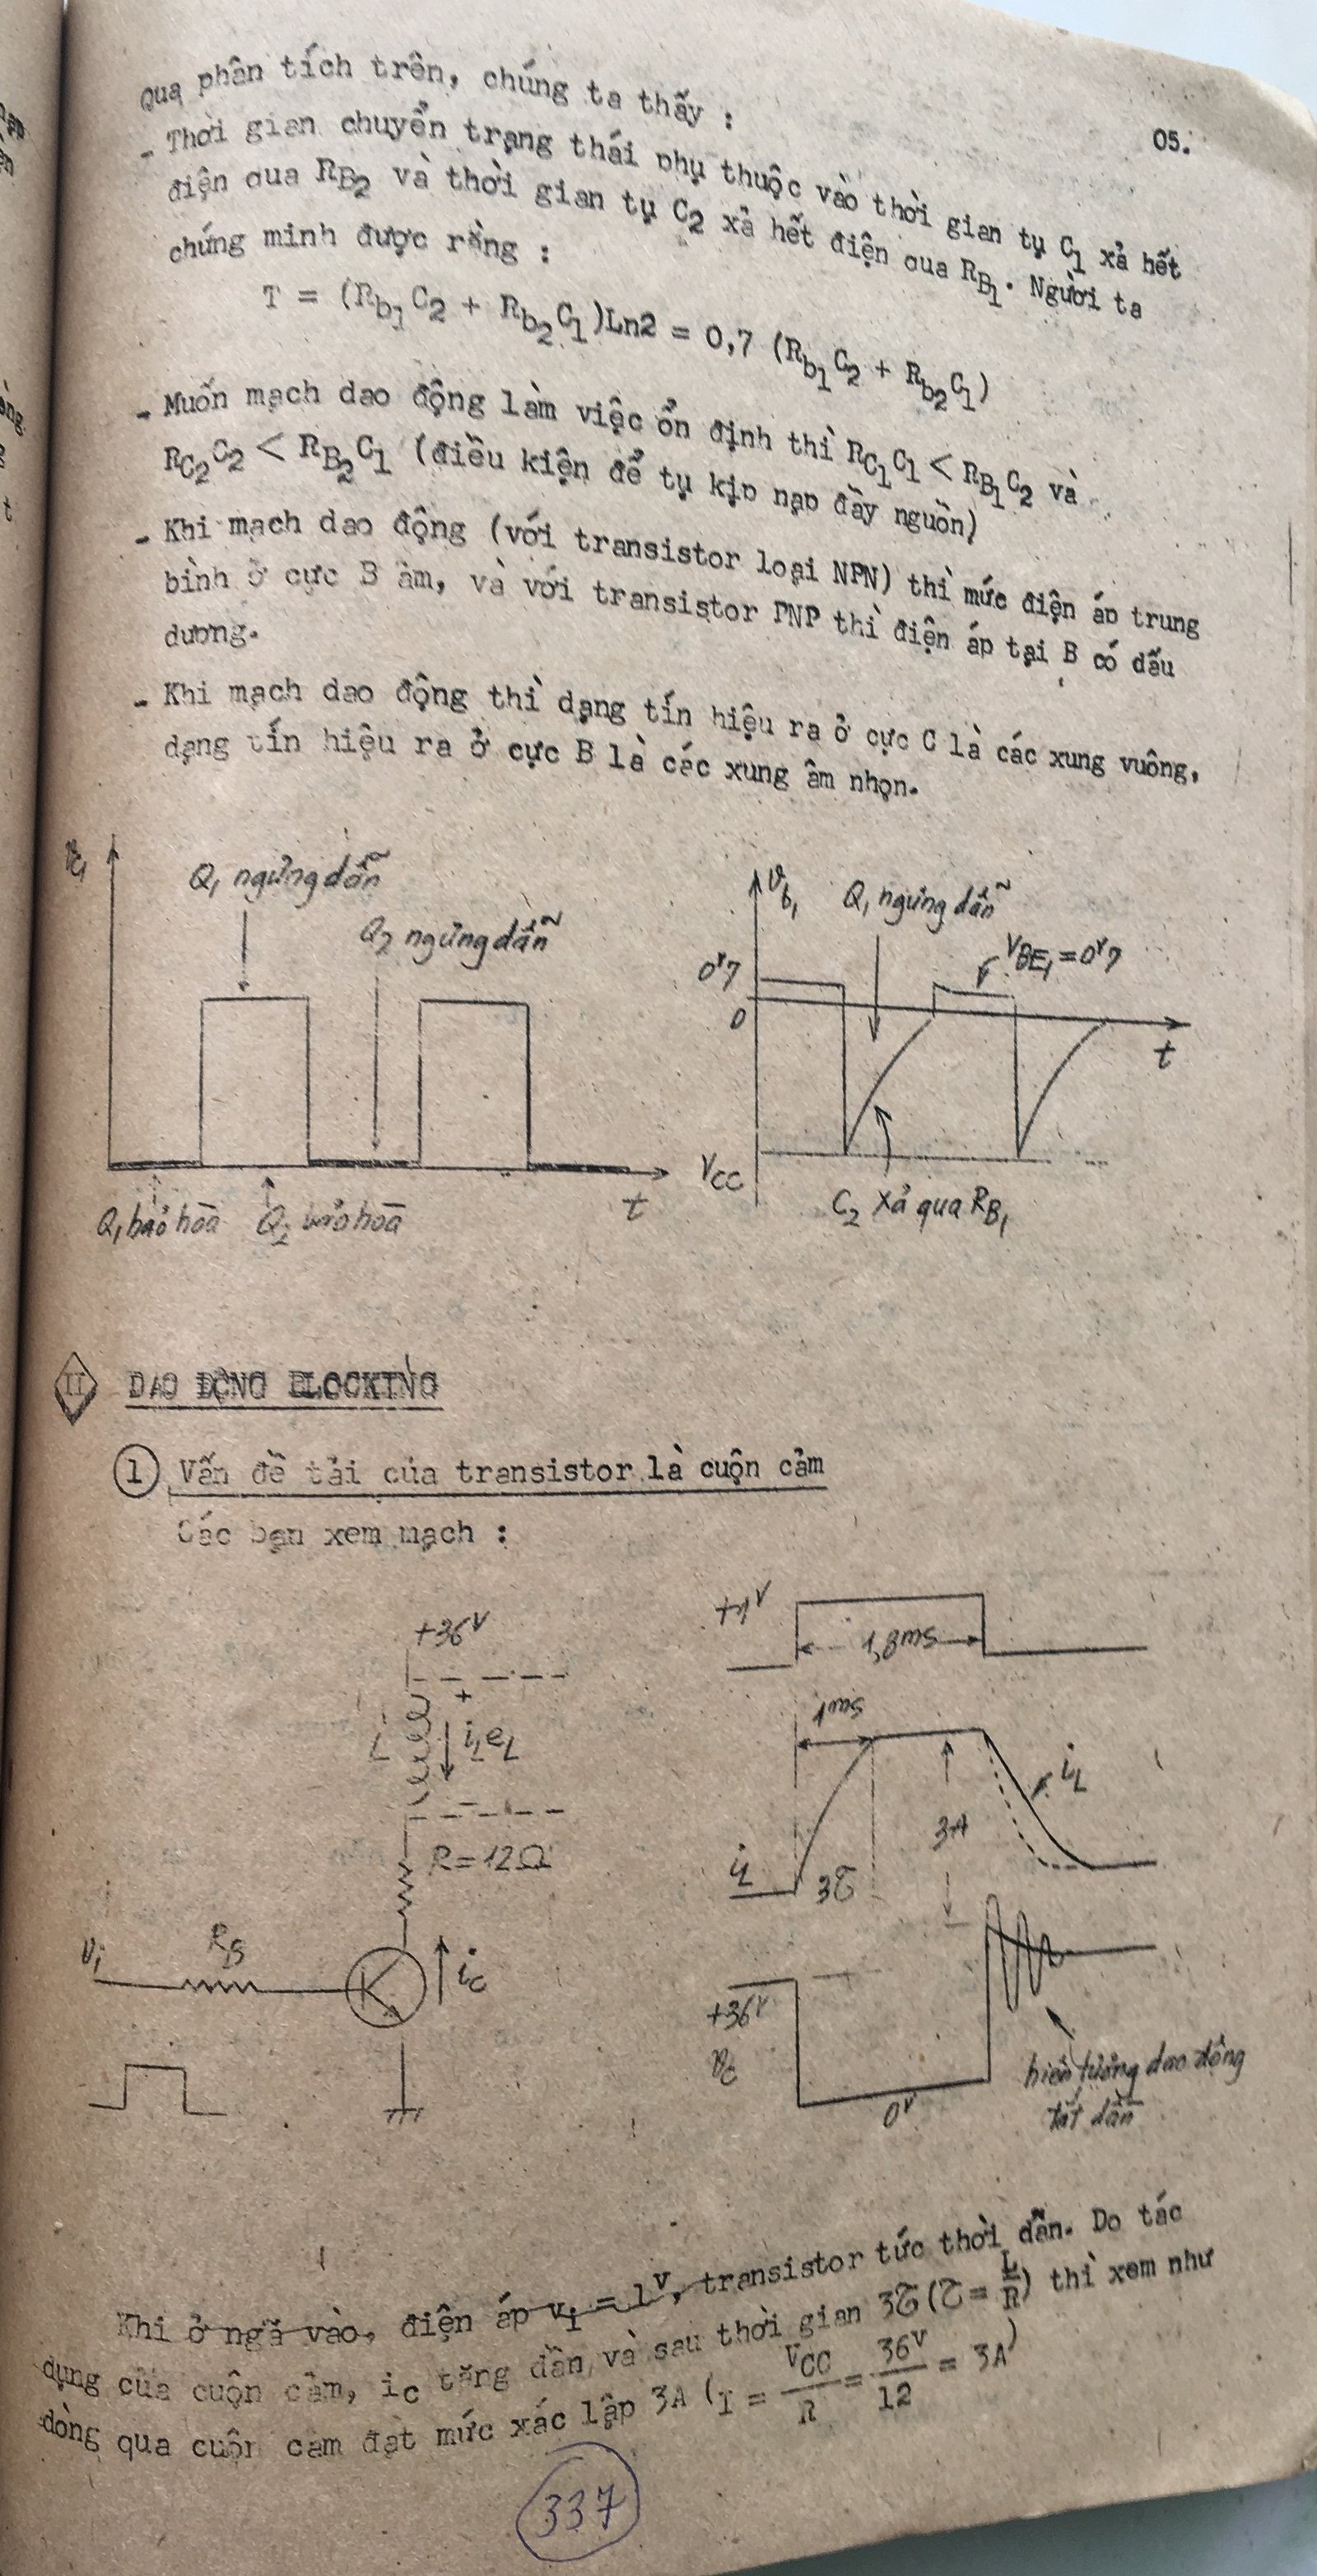 05.
Qua phân tích trên, chúng ta thấy :
- Thời gian chuyển trạng thái phụ thuộc vào thời gian tụ C1 xả hết
điện qua RB2 và thời gian tụ C2 xả hết điện qua RB1. Người ta
chứng minh được rằng :
T = (Rb1C2 + Rb2C1)Ln2 = 0,7 (Rb1C2 + Rb2C1)
- Muốn mạch dao động làm việc ổn định thì RC1C1 < RB1C2 và
RC2C2 < RB2C1 (điều kiện để tụ kịp nạp đầy nguồn)
- Khi mạch dao động (với transistor loại NPN) thì mức điện áp trung
bình ở cực B âm, và với transistor PNP thì điện áp tại B có dấu
dương.
- Khi mạch dao động thì dạng tín hiệu ra ở cực C là các xung vuông,
dạng tín hiệu ra ở cực B là các xung âm nhọn.
Q1 ngưng dẫn
Q2 ngưng dẫn
t
Q1 bảo hòa
Q2 bảo hòa
vb1
Q1 ngưng dẫn
0v7
VBE1 = 0v7
0
t
VCC
C2 xả qua RB1
II DAO ĐỘNG BLOCKING
1 Vấn đề tải của transistor là cuộn cảm
Các bạn xem mạch :
+36V
+
L
iL eL
R = 12Ω
vi
RB
iC
+1V
1,8ms
1ms
iL
3A
iL
3τ
+36V
vC
0V
hiện tượng dao động
tắt dần
Khi ở ngã vào, điện áp vi = 1V, transistor tức thời dẫn. Do tác
dụng của cuộn cảm, iC tăng dần và sau thời gian 3τ (τ = L/R) thì xem như
dòng qua cuộn cảm đạt mức xác lập 3A (I = VCC/R = 36V/12 = 3A)
337